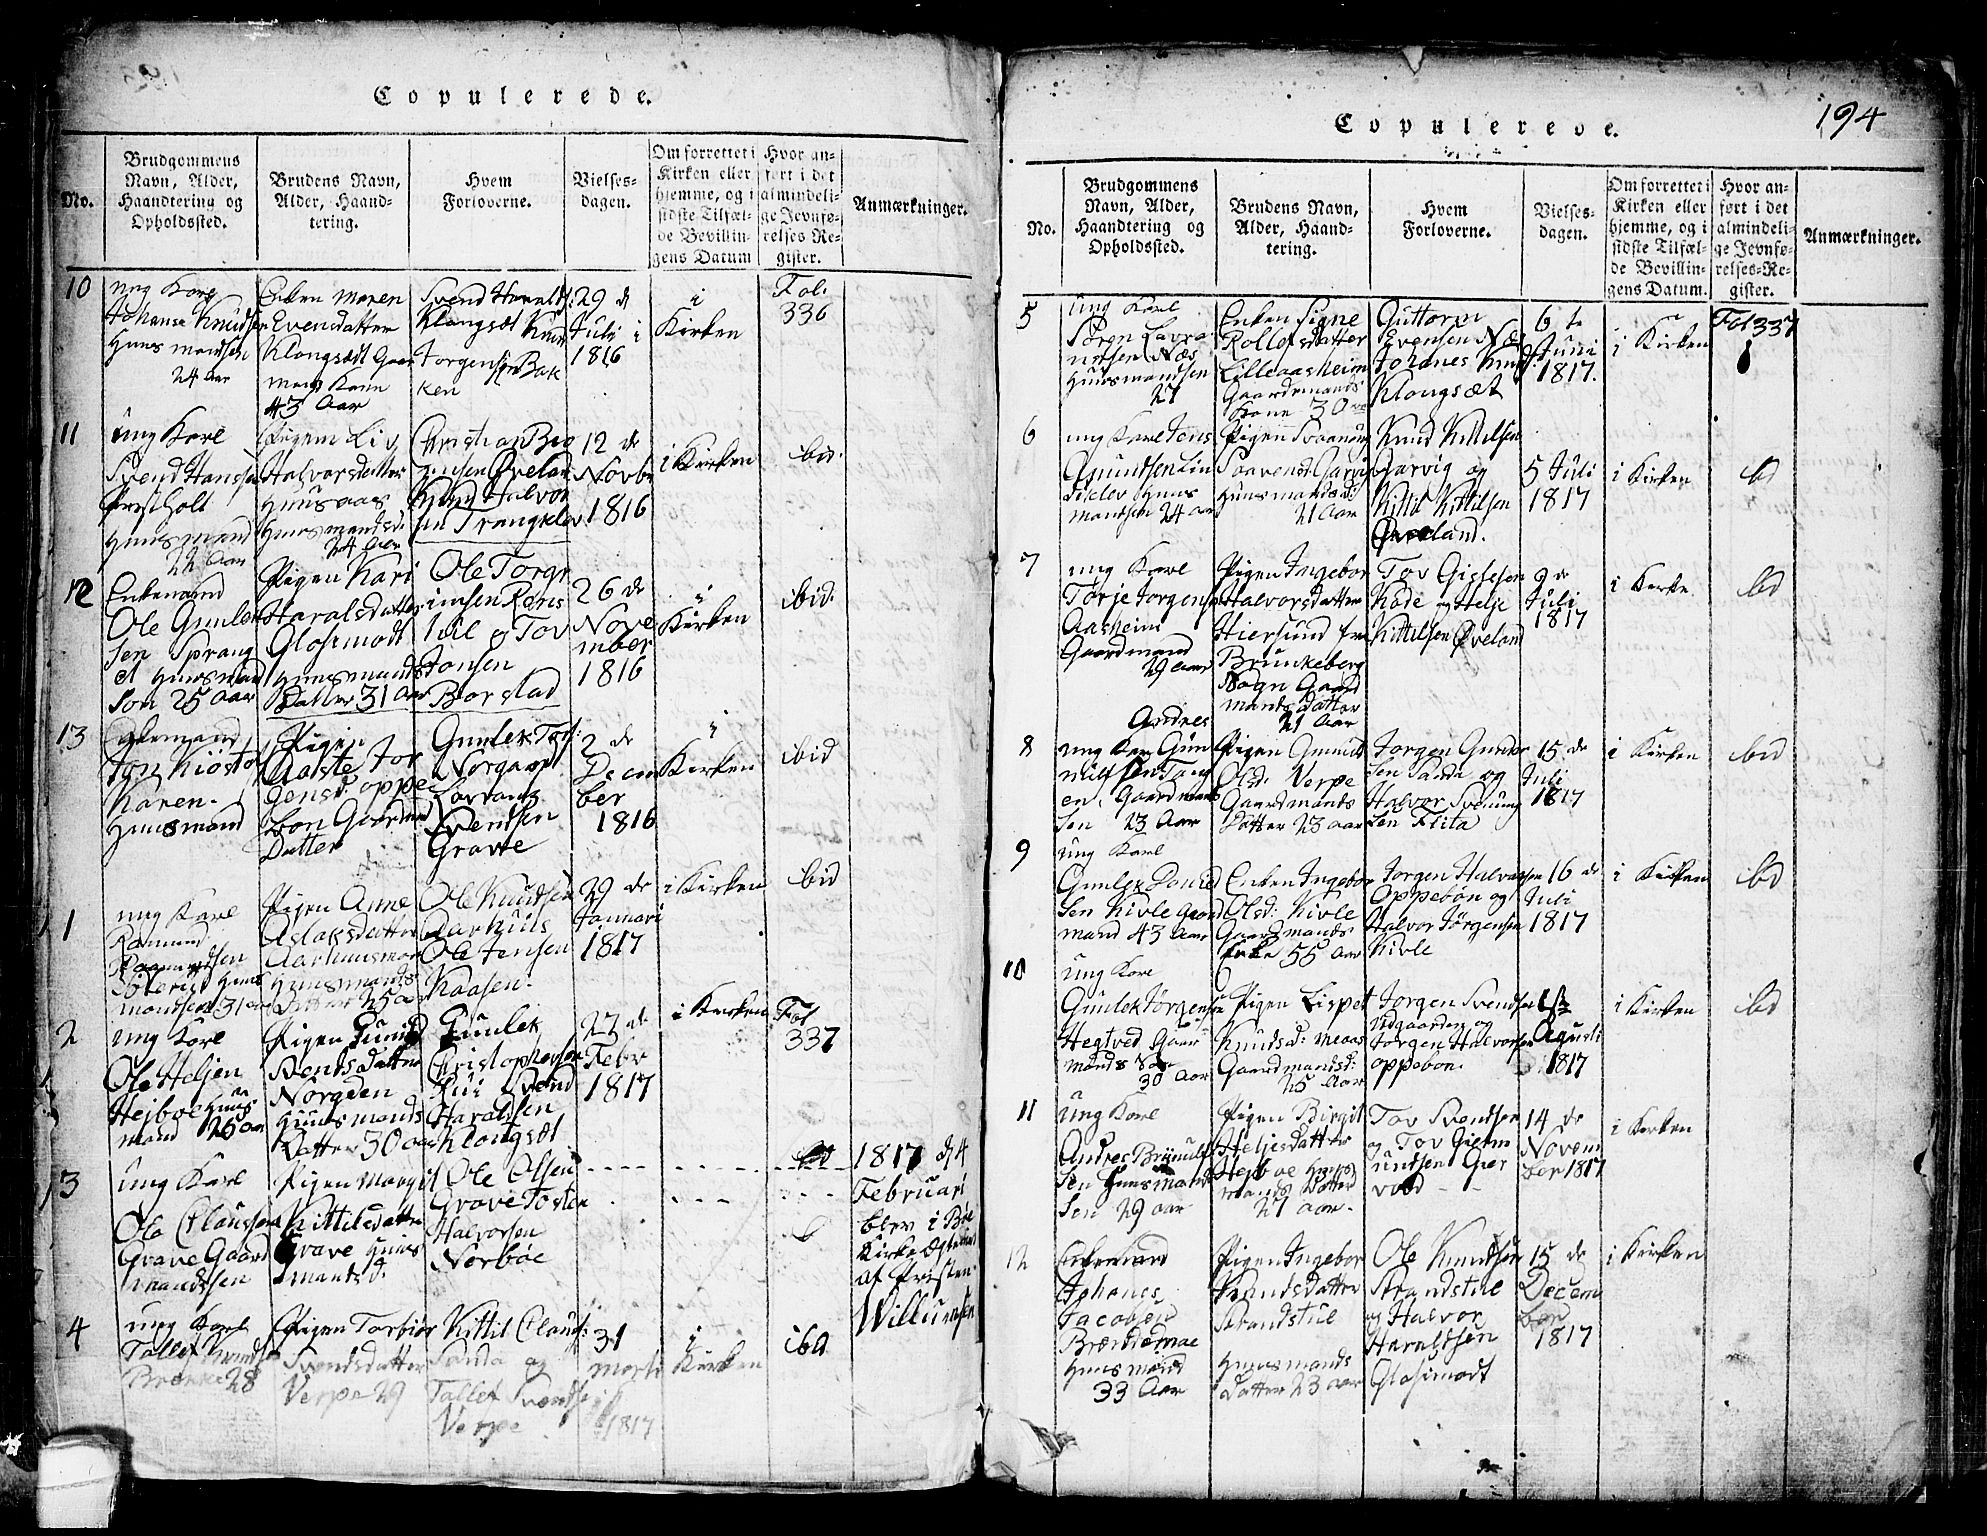 Copulerede.
No.
Brudgommens
Navn, Alder,
Haandtering og
Opholdssted.
Brudens Navn,
Alder, Haand-
tering.
Hvem
Forloverne.
Vielses-
dagen.
Om forrettet i
Kirken eller
hjemme, og i
sidste Tilfæl-
de Bevillin-
gens Datum
Hvor an-
ført i det
almindeli-
ge Jevnfø-
relses Re-
gister.
Anmærkninger.
10
ung Karl
Johanes Knudsen
Huusmandsen
24 Aar
Enken Maren
Evensdatter
Klongsæt Gaar
mans Kone
43 Aar
Svend Haralds:
Klongsæt Knud
Jorgensen Bak
ken
29 de
Juli i
1816
i
Kirken
Fol:
336
11
ung Karl
Svend Hansen
Prestholt
Huusmand
22 Aar
Pigen Liv
Halvorsdatter
Huusaas
Huusmandsd:
24 Aar
Christian
Øveland
Knud Halvor
sen Trangkleiv
12 de
Novbr
1816
i Kirken
ibid.
12
Enkemand
Ole Gunlek
sen Sprang
et Huusmand
Son 25 Aar
Pigen Kari
Haralsdatter
Glosimodt
Huusmands
Datter 31 Aar
Ole Torgr
imsen Røns
dal og Tov
Jonsen
Borstad
26 de
Nove
mber
1816
i
Kirken
ibid.
13
Enkemand
Jon
Haren.
Huusmand
Pigen
Aaste Jor
gensd: oppe
bøn Gaardmd
Datter
Gunlek Tors:
Norgaar
Svendsen
Grave
2 de
Decem
ber
1816
i
Kirken
ibid
1
ung Karl
Huus
mandsen 31 aar
Pigen Anne
Aslaksdatter
Aarhuusmoe
Huusmands
Datter 25 aar
Ole Knudsen
Aarhuus
Ole Jensen
Kaasen.
29 de
Januari
1817
i Kirken
ibid
2
ung Karl
Ole Heljesen
Hejboe Huus
mand 26 aar
Pigen Gunild
Bentsdatter
Norgden
Huusmands
Datter 30 aar
Gunlek
Christophersen
Rui Svend
Haraldsen
Klongsæt
27 de
Febr
1817
i Kirken
Fol
337
3
ung Karl
Ole Claussen
Grave Gaard
mandssen
Pigen Margit
Kittilsdatter
Grave Huus
mandsd.
Ole Olsen
Grave Tosten
Halvorsen
Norbøe
1817 d 4
Februari
blev i Bøe
Kirke
af Presten
Willumsen
4
ung Karl
Tallef Knudsen
28
Pigen Torbior
Svendsdatter
Verpe 29
Kittil Clauss:
Sanda og
Tallef Svendsen
Verpe
31
Marti
1817
i
Kirken
ibd
194
Copulerede.
No.
Brudgommens
Navn, Alder,
Haandtering og
Opholdssted.
Brudens Navn,
Alder, Haand-
tering.
Hvem
Forloverne.
Vielses-
dagen.
Om forrettet i
Kirken eller
hjemme, og i
sidste Tilfæl-
de Bevillin-
gens Datum.
Hvor an-
ført i det
almindeli-
ge Jevnfø-
relses-Re-
gister.
Anmærkninger.
5
ung Karl
Søren Lavra
ntsen Næs
Huusmandsen
27
Enken Signe
Rollofsdatter
Lilleaasheim
Gaardmands
Kone 30 aar
Guttorm
Evensen Næs
Johanes Knuds:
Klongsæt
6 te
Juni
1817.
i Kirken
Fol 337
6
ung Karl Jens
Amundsen Lin
Huus
mandsen 24 aar
Pigen Svanaug
Aarvig
Huusmandsd:
21 Aar
Knud Kittilsen
Aarvig og
Kittil Kittilsen
Øveland.
5 Juli
1817
i Kirken
ibd
7
ung Karl
Torje Jorgensen
Aasheim
Gaardmand
29 Aar
Pigen Ingebor
Halvorsdatter
Hiersund fra
Brunkeberg
Sogn Gaard
mands datter
21 Aar
Tov Gislesen
Kaase og Helje
Kittilsen Øveland
9 de
Juli
1817
i Kirke
ibd
8
Andres
ung Karl Gun
nulfsen
Gaardmands
Sen 23 Aar
Pigen Gunild
Olsd: Verpe
Gaardmands
Datter 23 aar
Jorgen Gundor
sen Sanda og
Halvor Svenung
sen Flita
15 de
Juli
1817
i Kirken
ibid
9
ung Karl
Gunlek
Sen Kivle Gaard
mand 43 Aar
Enken Ingebor
Olsd: Kivle
Gaardmands
Enke 55 Aar
Jorgen Halvorsen
Oppebøn og
Halvor Jørgensen
Kivle
16 de
Juli
1817
i Kirken
ibd
10
ung Karl
Gunlek Jorgensen
Hegtved Gaar
mands Søn
30 Aar
Pigen Lispet
Knudsd: Meaas
Gaardmandsd:
25 Aar
Jorgen Svendsen
Vidgaarden og
Jorgen Halvorsen
oppebøn.
Agusti
1817
i Kirken
ibd
11
ung Karl
Andres Brynuls
Sen Huusmands
Sen 29 aar
Pigen Birgit
Heljesdatter
Hejboe Huus
mands Datter
27 aar.
Tov Svendsen
og Tov Gierm
undsen Gjer
vold
14 de
Novem
ber 1817
i Kirken
12
Enkemand
Johanes
Jacobsen
Brændemoe
Huusmand
33 Aar
Pigen Ingebor
Knudsdatter
Strandstul
Huusmands
Datter 23 aar
Ole Knudsen
Strandstul
og Halvor
Haraldsen
Glosimodt
15 de
Decem
ber
1817
i Kirken